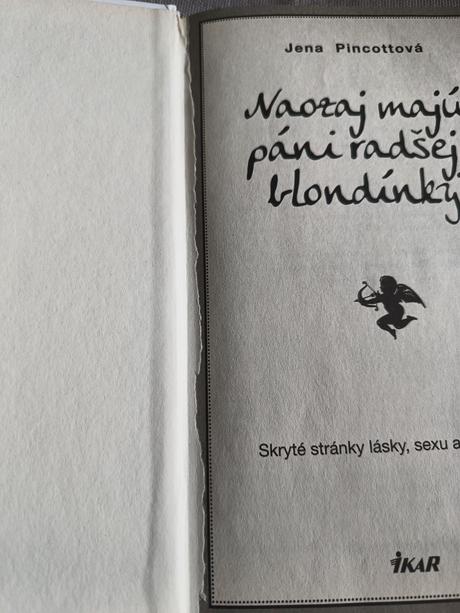 Jena Pincottová
Naozaj majú
páni radšej
blondínky
Skryté stránky lásky, sexu a
IKAR